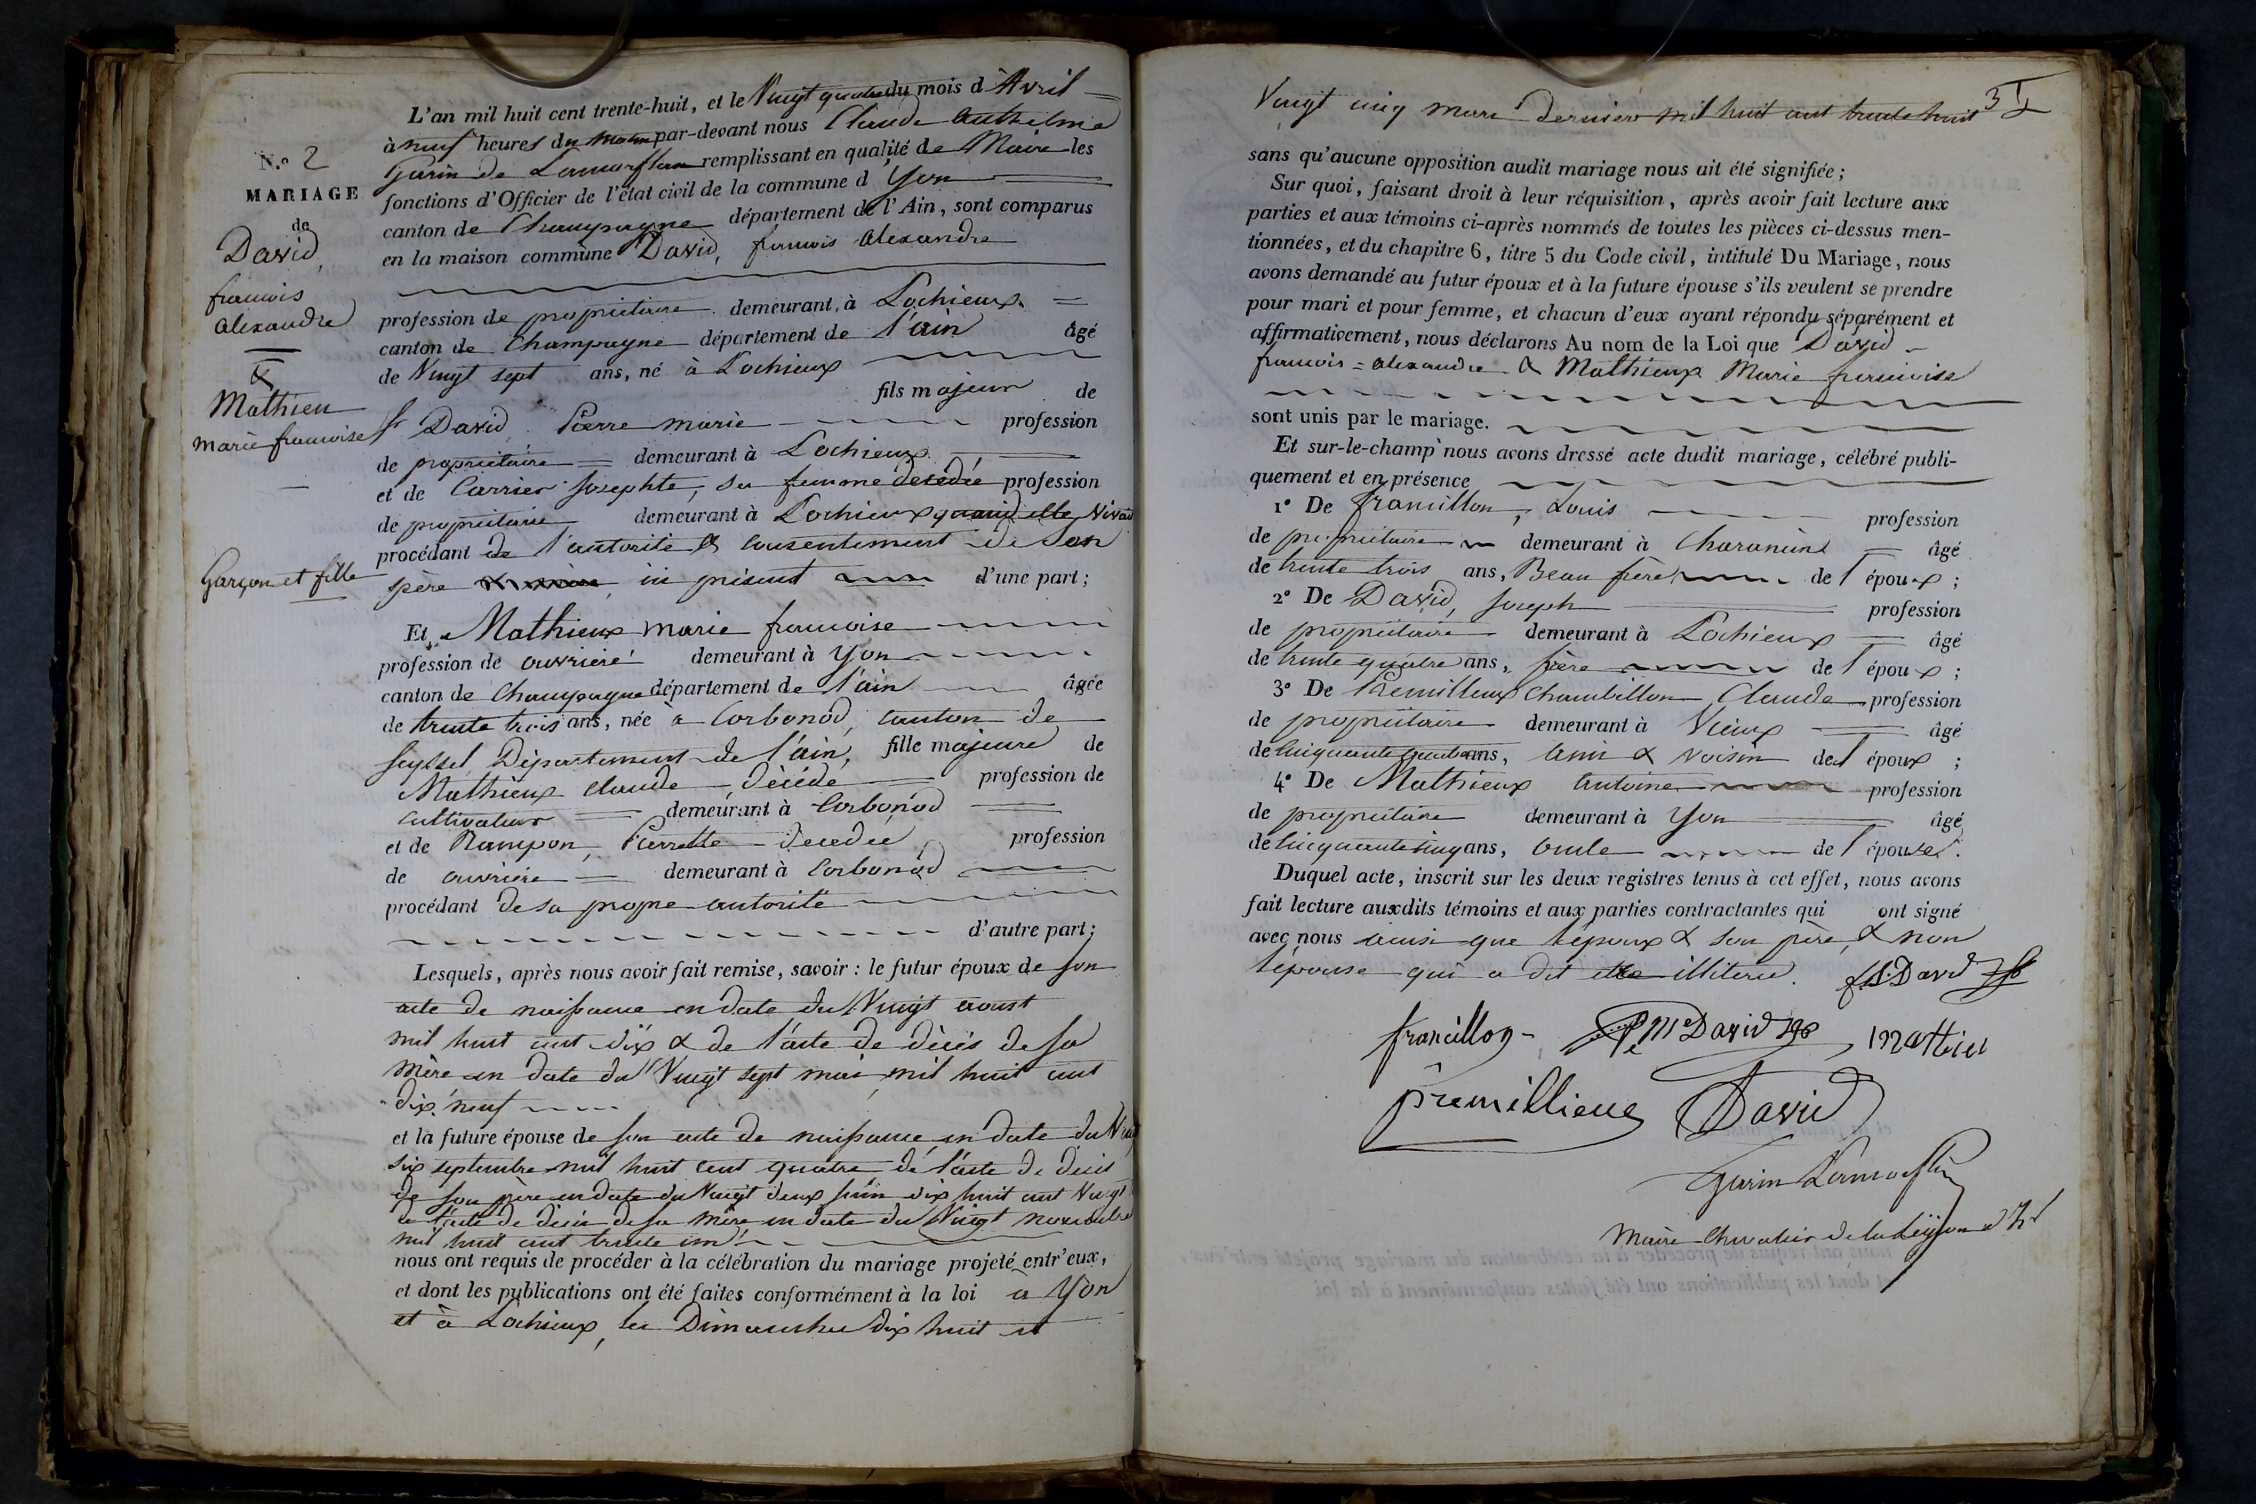 N.o 2
MARIAGE
de
David,
francois
alexandre
&
Mathieu
marie francoise
Garçon et fille
L'an mil huit cent trente-huit, et le Vingt quatre du mois d'Avril
à neuf heures du matin par-devant nous Claude Anthelme
Garin de Lamorflan remplissant en qualité de Maire les
fonctions d'Officier de l'état civil de la commune d'Yon
canton de Champagne département de l'Ain, sont comparus
en la maison commune David, francois alexandre
profession de propriétaire demeurant à Lochieux
canton de Champagne département de l'ain âgé
de Vingt sept ans, né à Lochieux
fils majeur de
Sr David Pierre marie profession
de propriétaire demeurant à Lochieux
et de Carrier Josephte, sa femme décédée profession
de propriétaire demeurant à Lochieux quand elle vivait
procédant de l'autorité & consentement de son
père ici présent d'une part;
Et Mathieux marie francoise
profession de ouvrière demeurant à Yon
canton de Champagne département de l'ain âgée
de trente trois ans, née à Corbonod, canton de
Seyssel Département de l'ain, fille majeure de
Mathieux claude, décédé profession de
cultivateur demeurant à Corbonod
et de Rampon, Pierrette décédée profession
de ouvrière demeurant à Corbonod
procédant de sa propre autorité
d'autre part;
Lesquels, après nous avoir fait remise, savoir: le futur époux de son
acte de naissance en date du Vingt aoust
mil huit cent dix & de l'acte de décès de sa
mère en date du Vingt sept mai mil huit cent
dix neuf
et la future épouse de son acte de naissance en date du Vingt
six septembre mil huit cent quatre de l'acte de décès
de son père en date du Vingt deux juin dix huit cent Vingt
de l'acte de décès de sa mère en date du Vingt novembre
mil huit cent trente
nous ont requis de procéder à la célébration du mariage projeté entr'eux,
et dont les publications ont été faites conformément à la loi à Yon
et à Lochieux, les Dimanches dix huit et
3
Vingt cinq mars dernier mil huit cent trente huit
sans qu'aucune opposition audit mariage nous ait été signifiée;
Sur quoi, faisant droit à leur réquisition, après avoir fait lecture aux
parties et aux témoins ci-après nommés de toutes les pièces ci-dessus men-
tionnées, et du chapitre 6, titre 5 du Code civil, intitulé Du Mariage, nous
avons demandé au futur époux et à la future épouse s'ils veulent se prendre
pour mari et pour femme, et chacun d'eux ayant répondu séparément et
affirmativement, nous déclarons Au nom de la Loi que David
francois = alexandre & Mathieux Marie francoise
sont unis par le mariage.
Et sur-le-champ nous avons dressé acte dudit mariage, célébré publi-
quement et en présence
1° De francillon, Louis profession
de propriétaire demeurant à Charancin âgé
de trente trois ans, Beau frère de l'époux;
2° De David, Joseph profession
de propriétaire demeurant à Lochieux âgé
de trente quatre ans, frère de l'époux;
3° De Premillieux Chambillon Claude profession
de propriétaire demeurant à Vieux âgé
de cinquante quatre ans, ami & voisin de l'époux;
4° De Mathieux antoine profession
de propriétaire demeurant à Yon âgé
de cinquante cinq ans, oncle de l'épouse.
Duquel acte, inscrit sur les deux registres tenus à cet effet, nous avons
fait lecture auxdits témoins et aux parties contractantes qui ont signé
avec nous ainsi que l'époux & son père, & non
l'épouse qui a dit être illiterée. David
francillon Pe Me David mathieu
premillieux David
Garin Lamorflan
Maire Chevalier de la Légion d'hr